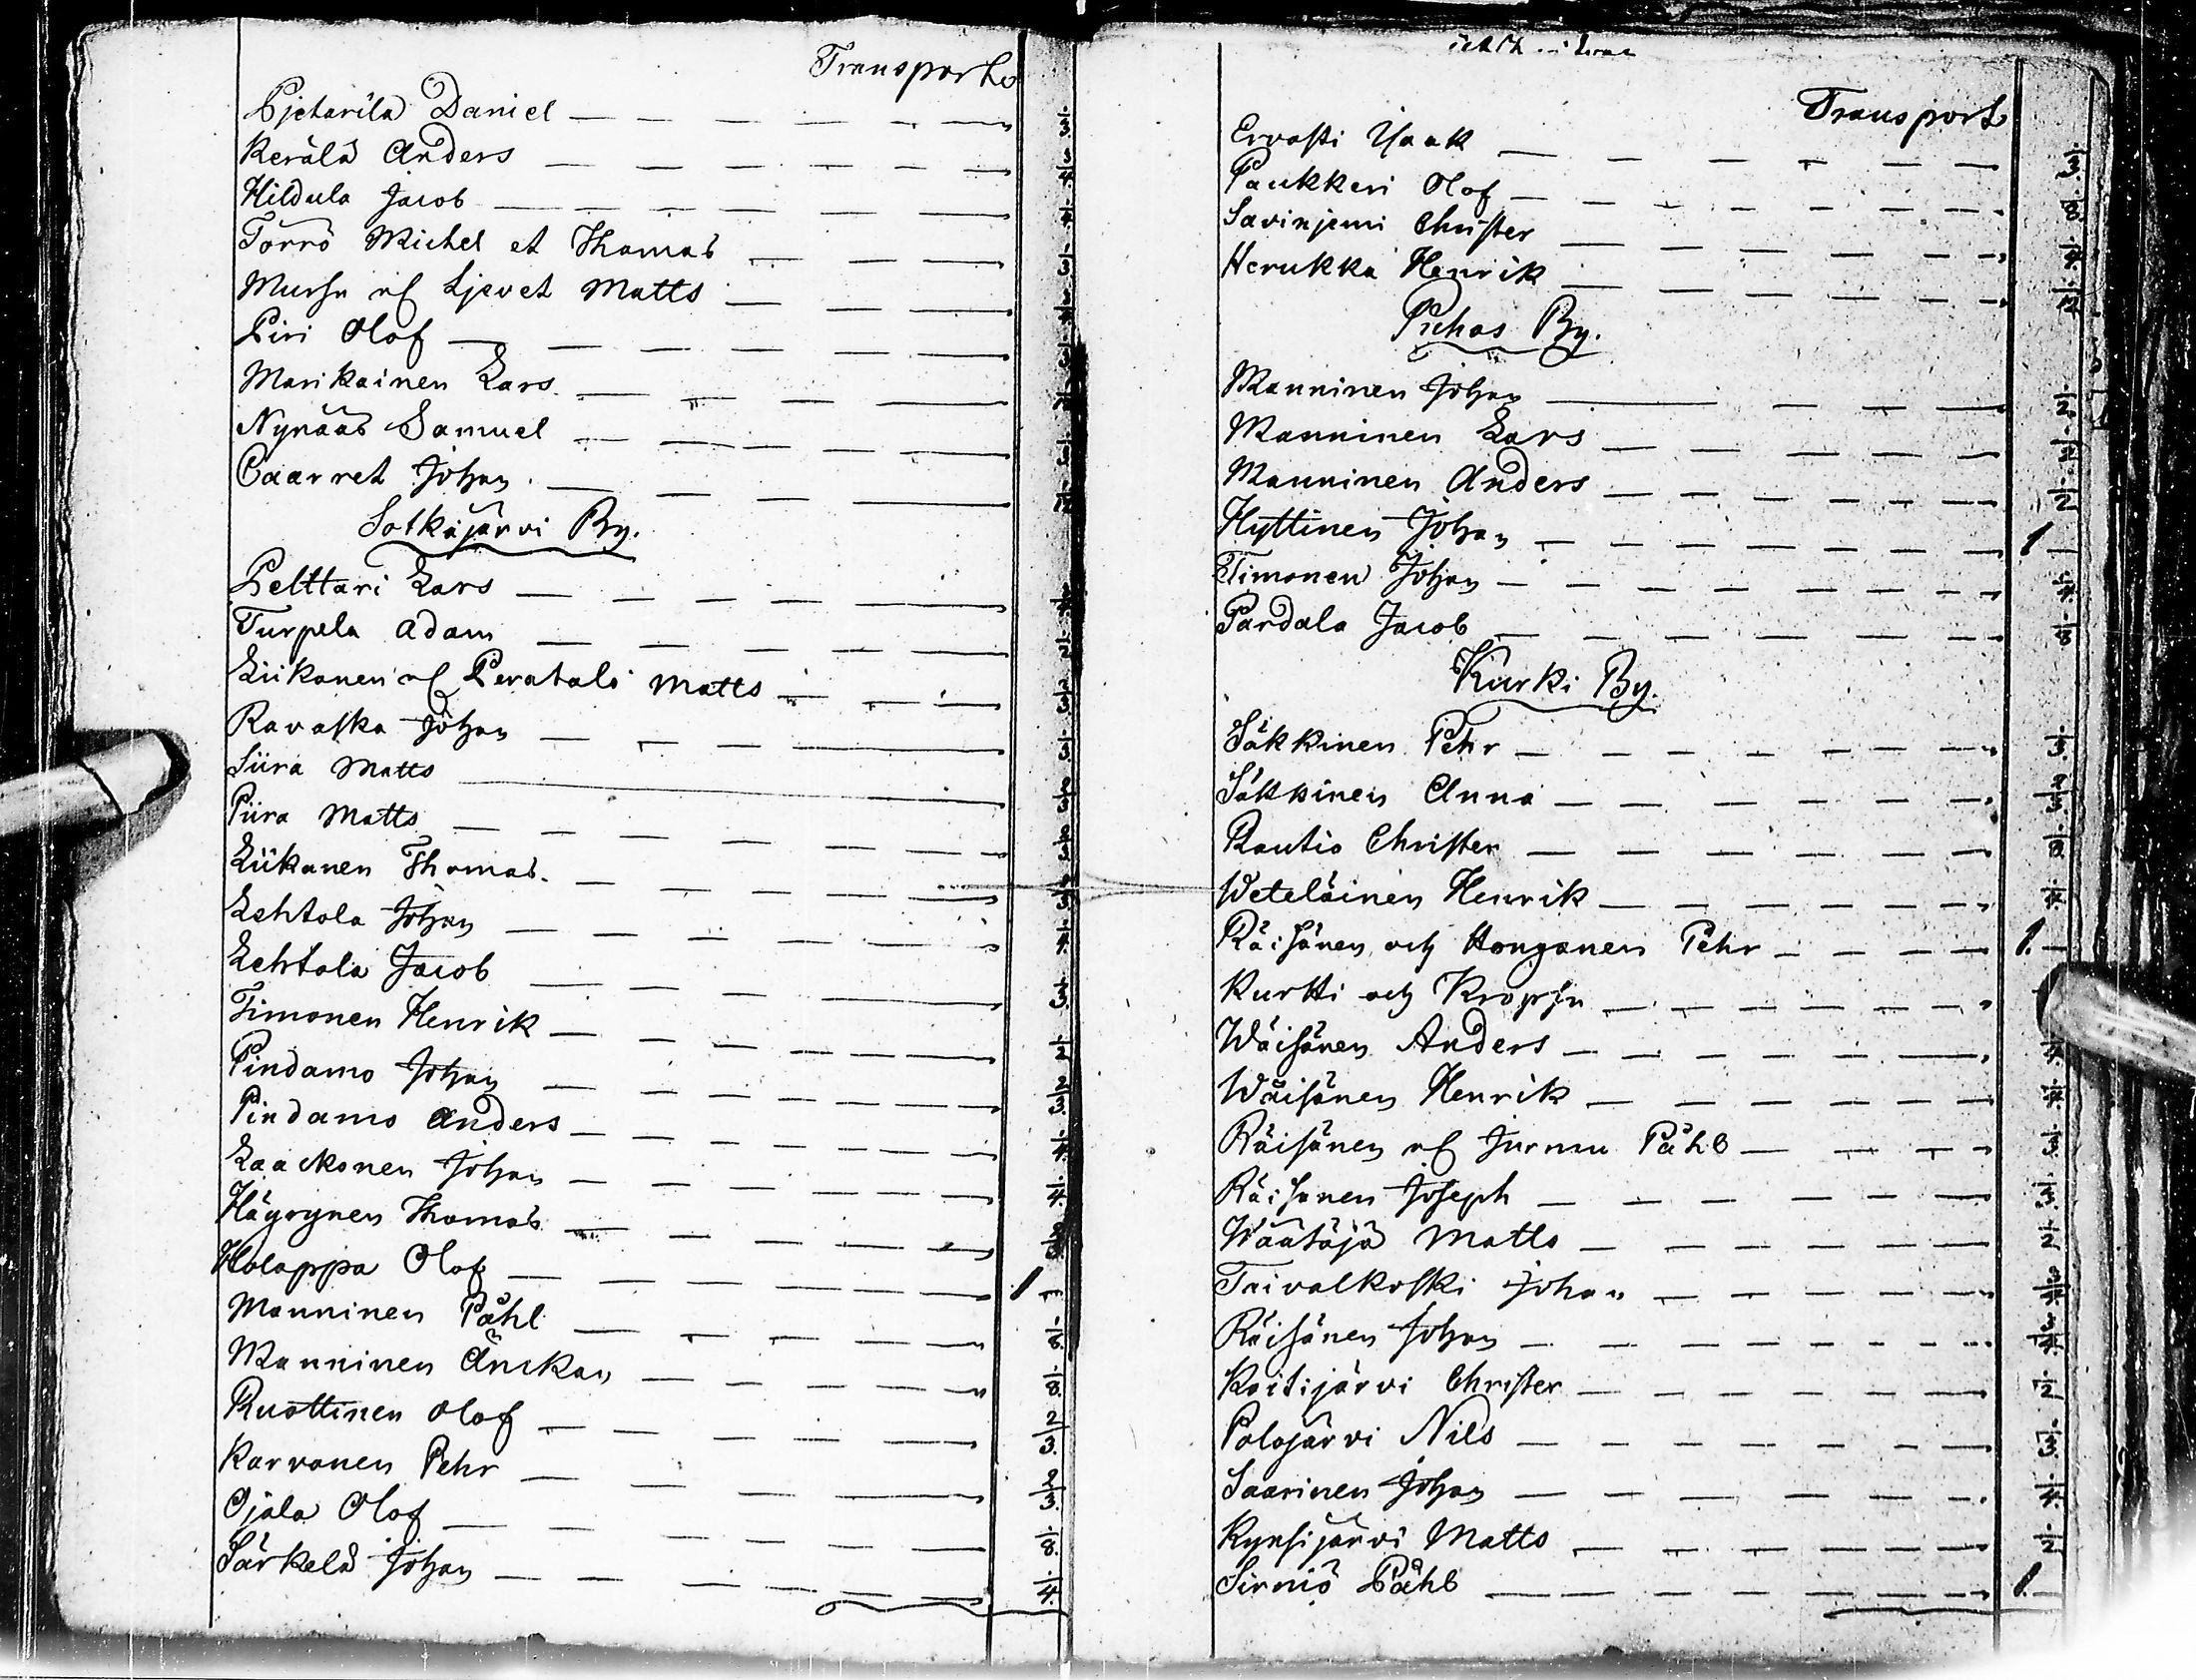 Transport
Pjetarila Daniel — 1/3
Kerälä Anders — 3/4
Hildula Jacob — 1/4
Törrö Michel et Thomas — 1/3
Mursu el Ljevet Matts — 3/4
Piri Olof — 1/3
Marikainen Lars — 1/12
Nynääs Samuel — 1/3
Caarret Johan — 1/12
Sotkajärvi By.
Pelttari Lars
Turpela Adam — 1/2
Liikanen el Peratalo Matts — 2/3
Ravaska Johan — 1/3
Siira Matts — 2/3
Piira Matts — 2/3
Liikanen Thomas — 2/3
Lehtola Johan — 1/4
Lehtola Jacob — 1/3
Timonen Henrik — 1/2
Pindamo Johan — 2/3
Pindamo Anders — 1/4
Laackonen Johan — 1/4
Häyrynen Thomas — 2/3
Holappa Olof — 1 —
Manninen Påhl — 1/8
Manninen Änckan — 1/8
Ruottinen Olof — 2/3
Karvonen Pehr — 2/3
Ojala Olof — 1/8
Särkelä Johan — 1/4
Transport
Ervasti Isaak — 1/3
Paukkeri Olof — 1/8
Savinjemi Christer — 1/4
Herukka Henrik — 1/12
Puhos By.
Manninen Johan — 1/2
Manninen Lars — 1/2
Manninen Anders — 1/2
Hyttinen Johan — 1 —
Timonen Johan — 1/4
Pardala Jacob — 1/8
Kurki By.
Säkkinen Pehr — 1/3
Säkkinen Anna — 2/3
Rautio Christer — 1/8
Weteläinen Henrik — 1/4
Räisänen och Honganen Pehr — 1 —
Kurtti och Kropsu
Wäisänen Anders — 1/4
Wäisänen Henrik — 1/4
Räisänen el Jurmu Påhl — 1/3
Räisänen Joseph — 1/3
Wäätäjä Matts — 1/2
Taivalkoski Johan — 3/4
Räisänen Johan — 3/4
Koitijärvi Christer — 1/2
Polojärvi Nils — 1/3
Saarinen Johan — 1/4
Kynsijärvi Matts — 1/2
Sirniö Påhl — 1 —